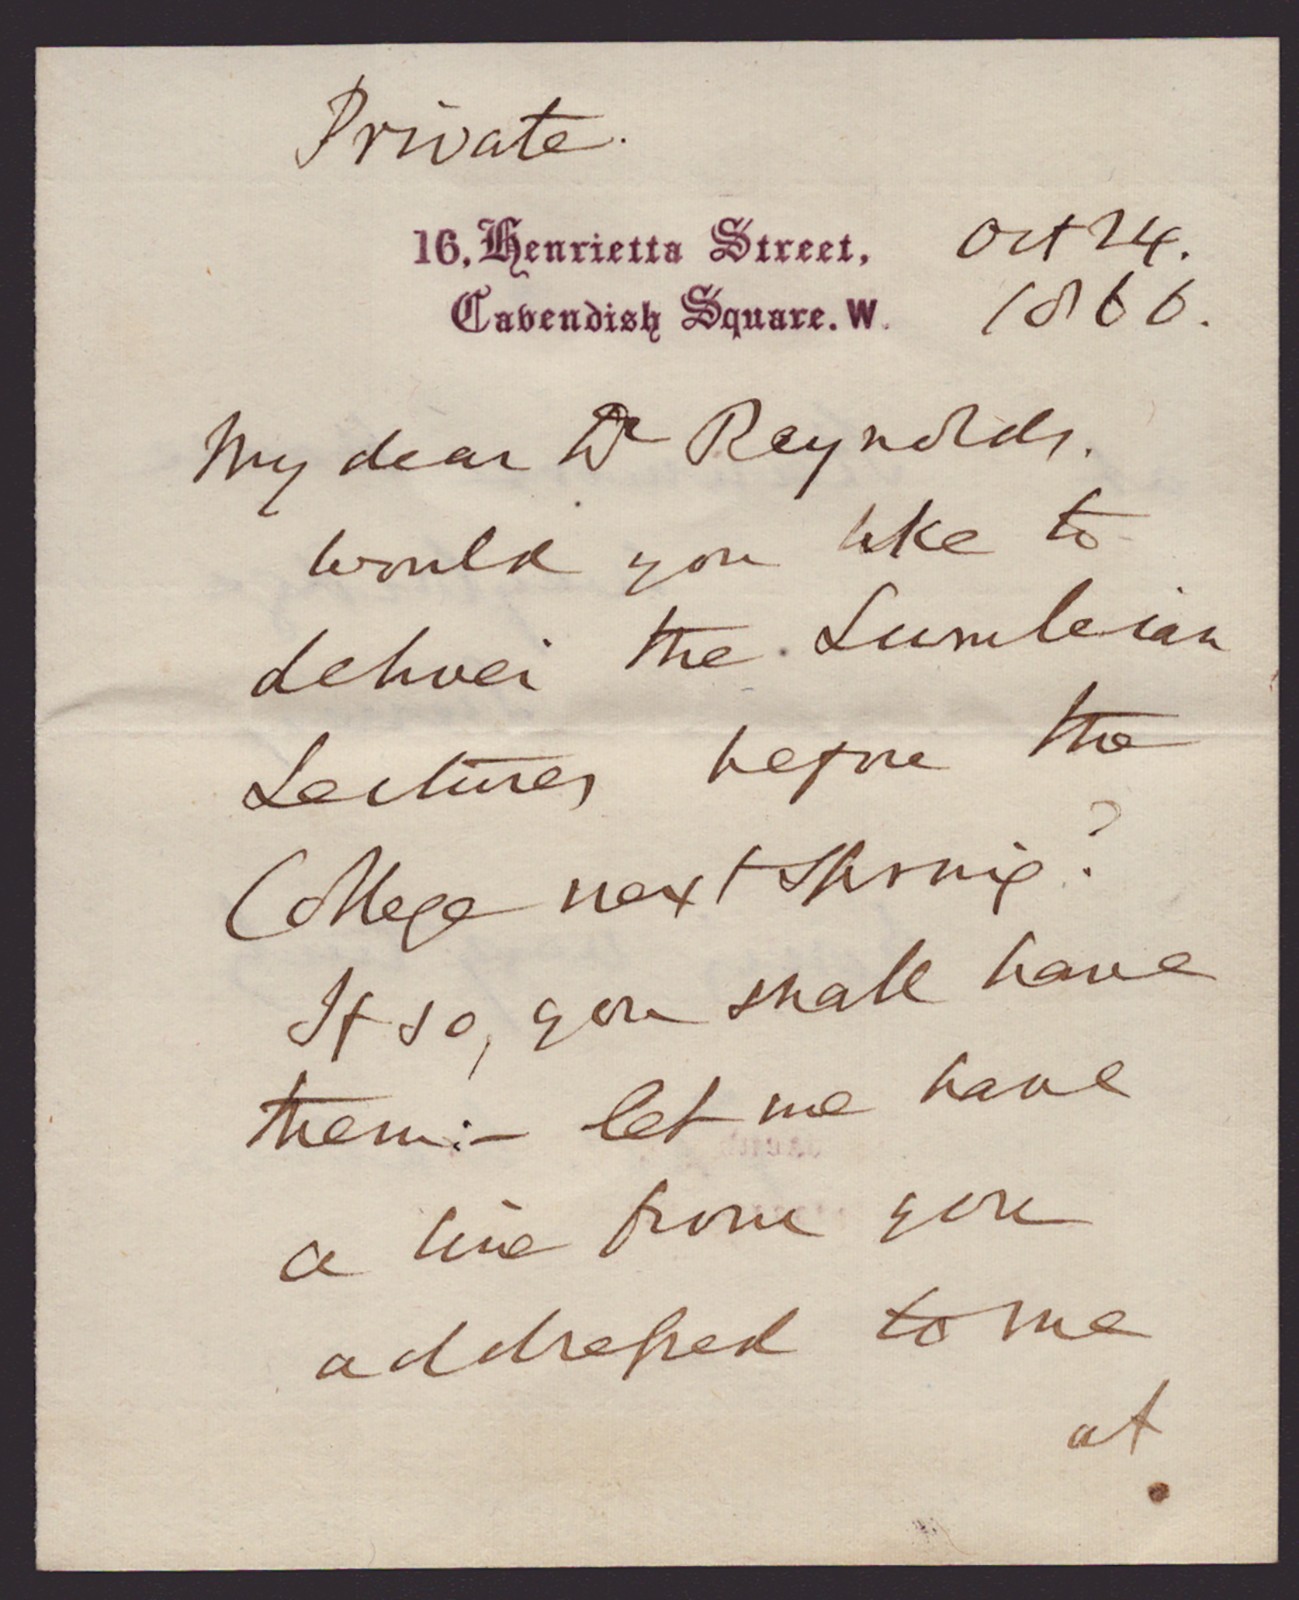 Private.
16, Henrietta Street, Oct 24.
Cavendish Square. W. 1866.
My dear Dr Reynolds.
would you like to
deliver the Lumleian
Lectures before the
College next Spring?
If so, you shall have
them:- let me have
a line from you
addressed to me
at